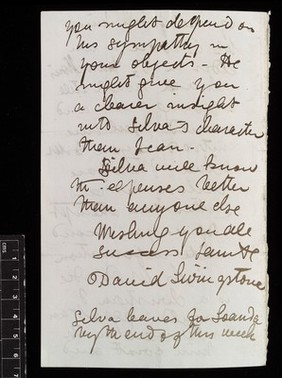 you might depend on
his sympathy in
your objects - He
might give you
a clearer insight
into Silva's character
than I can -
Silva will know
the expenses better
than anyone else
Wishing you all
success I am &c
David Livingstone
Silva leaves for Loanda
by the end of this week